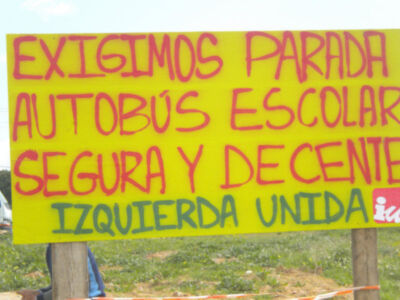 EXIGIMOS PARADA
AUTOBÚS ESCOLAR
SEGURA Y DECENTE
IZQUIERDA UNIDA
iu